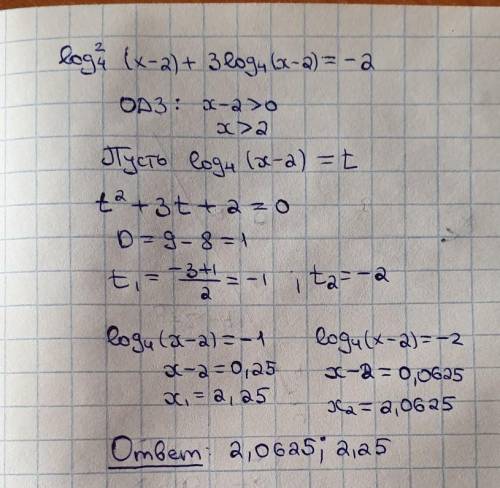 log₄² (x-2) + 3log₄(x-2) = -2
ОДЗ: x-2>0
x>2
Пусть log₄(x-2) = t
t² + 3t + 2 = 0
D = 9 - 8 = 1
t₁ = (-3+1)/2 = -1 ; t₂ = -2
log₄(x-2) = -1
x-2 = 0,25
x₁ = 2,25
log₄(x-2) = -2
x-2 = 0,0625
x₂ = 2,0625
Ответ: 2,0625; 2,25